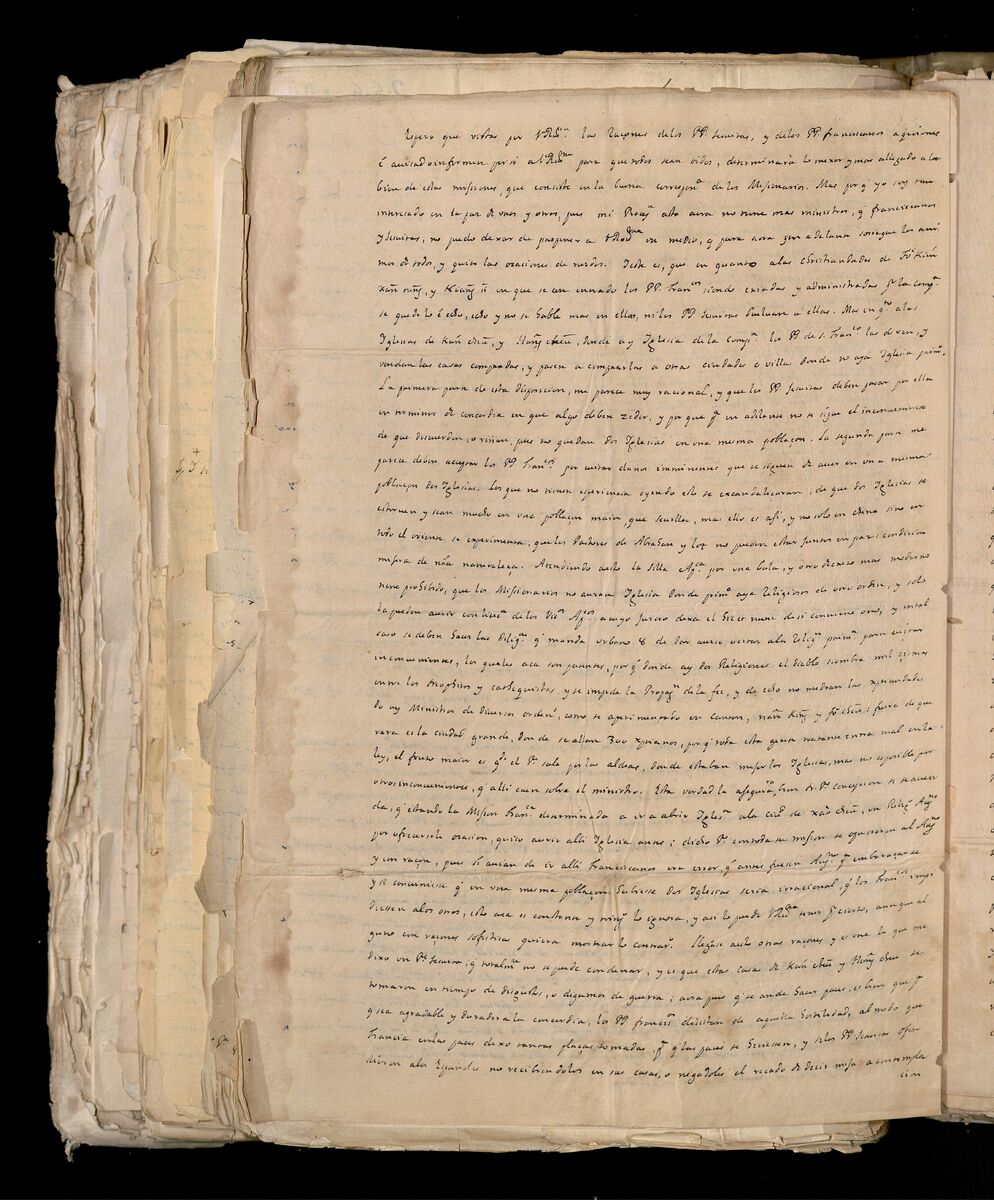 Espero que vistas por VRma. las raçones delos PP. Jesuitas, y delos PP. franciscanos a quienes
é avisado informen por si a VRma para que todos sean oidos, determinarà lo mexor y mas allegado a la
bien de estas missiones, que consiste en la buena correspon.a de los Missionarios. Mas porq̃ yo soy mui
interesado en la paz de unos y otros, pues mi Prou.a asta aora no tiene mas ministros, q̃ franciscanos
y Jesuitas, no puedo dexar de proponer a VRma un medio, q̃ para aora y en adelante sosiegue los ani
mos de todos, y quite las ocasiones de ruidos. Este es, que en quanto alas christiandades de Fo Kién
Xan tung, y Kiang si en que se an entrado los PP. Fran.cos siendo criadas y administradas pr la Comp.a
se quede lo echo, echo y no se hable mas en ellos, ni los PP Jesuitas buelvan a ellas. Mas en q.to a las
Iglesias de Kan cheu, y Hang cheu, donde ay Iglesia de la Comp.a los PP de S. Fran.co las dexen, y
vendan las casas compradas, y pasen a comprarlas a otras ciudades o villas donde no aya Iglesia prim.o
La primera parte de esta disposicion, me parece muy racional, y que los PP Jesuitas deben pasar por ella
en terminos de concordia en que algo deben zeder, y por que pr en adelante no se sigue el inconveniente
de que discuerden, o riñan, pues no quedan dos Iglesias en una mesma poblaçon. La segunda parte me
parece deben aceptar los PP Fran.cos por evitar daños imminentes que se siguen de aver en una mesma
poblaçon dos Iglesias. Los que no tienen esperiencia oyendo esto se escandaliçaran, de que dos Iglesias se
estorven y sean mucho en una poblaçon maior, que Sevilla, mas ello es asi, y no solo en china sino en
todo el oriente se experimenta, que los Pastores de Abrahan y lot no pueden estar juntos en paz: condicion
misera de nra naturaleza. Atendiendo aesto la Silla Ap.ca por una bula, y otro decreto mas moderno
tiene prohibido, que los Missionarios no auran Iglesia donde prim.o aya Religiosos de otro orden, y solo
la puedan aurir con licen.a de los Vic.os Ap.cos
caso se deben haçer las dilig.as q̃ manda urbano 8 de
inconvenientes, los quales aca son patentes, por q̃ donde ay dos Religiones el diablo siembra mil çiçañas
entre los Neophitos y cathequistas, y se impide la Propag.n de la fee, y de echo no medran las xpiandades
do ay Ministros de diversos orden, como se a experimentado en Canton, nan King y fo cheu: fuera de que
rara es la ciudad grande, donde se allan 300 xpianos, por q̃ toda esta gente
ley, el fruto maior es q.do el P.e sale por las aldeas, donde estaban mejor las Iglesias, mas no es posible por
otros inconvenientes, q̃ alli caen sobre el ministro. Esta verdad la asegura bien
da, q̃ estando la Mission Fran.ca determinada a ir a abrir Igles.a ala Ciu.d de xao cheu, un Relig.o Aug.no
por ofrecersele ocasion, quiso aurir alli Iglesia antes; dicho P.e con toda su mission se opusieron al Aug.no
y con raçon, pues si avian de ir alli Franciscanos era error, q̃ antes fuesen Aug.nos
y si conviniese q̃ en una mesma poblaçon hubiese dos Iglesias seria irracional, q̃ los Fran.cos impi
diessen alos otros, esto aca es constante y ning.o lo ignora, y asi lo puede VRma tener pr cierto, aunque al
guno con raçones sofisticas quiera mostrar lo contrar.o Llegase aesto otras raçones, y es una la que me
dixo un P.e Jesuita, q̃ totalm.te no se puede condenar, y es que estas casas de Kan cheu y Hang cheu se
tomaron en tiempo de disgustos, o digamos de guerra; aora pues q̃ se an de haçer paces, es bien que pr
q̃ sea agradable y duradera la concordia, los PP francis.os desistan de aquella hostilidad, al modo que
Francia en las paces dexo tantas plaças tomadas, pr q̃ las paces se hiciesen, y si los PP Jesuitas ofen
dieron alos Españoles no recibiendolos en sus casas, o negadoles el recado de decir misa a contempla
cion